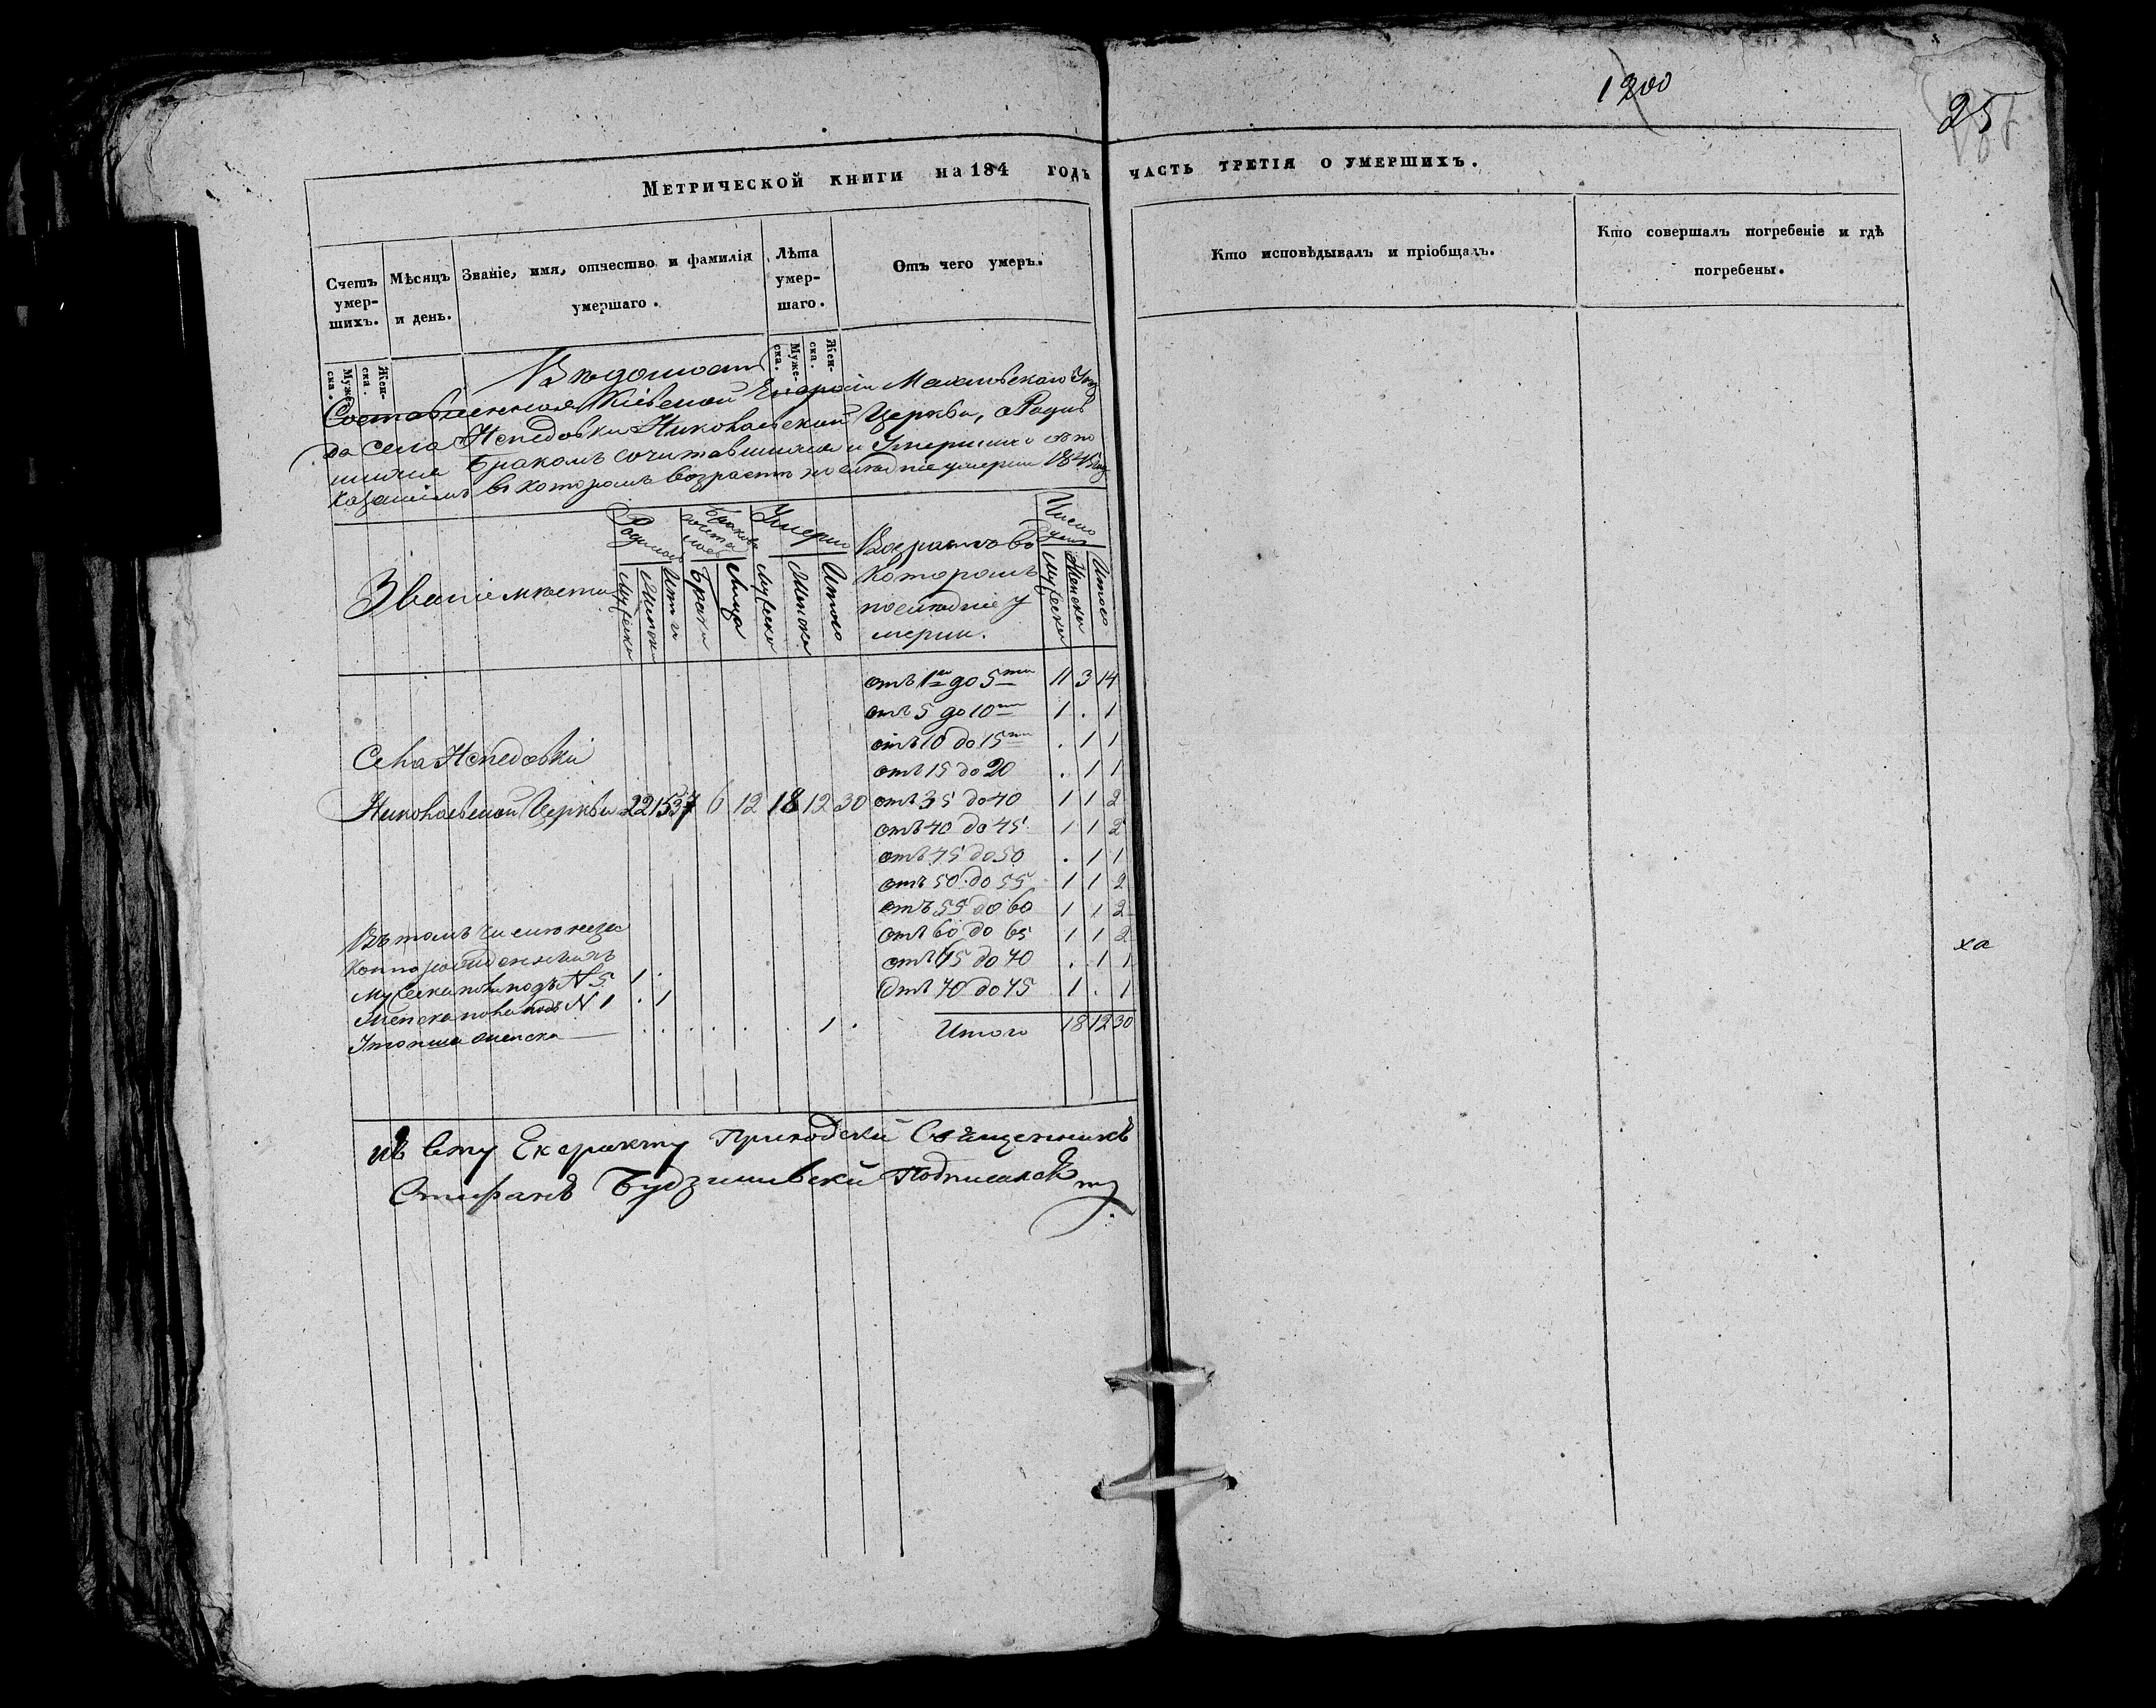 1200
25
Метрической книги на 184 годъ
часть третія о умершихъ.
Счетъ умер-шихъ.
Мѣсяцъ и день.
Званіе, имя, отчество и фамилія
умершаго.
Лѣта умер-шаго.
Отъ чего умеръ.
Кто исповѣдывалъ и пріобщалъ.
Кто совершалъ погребеніе и гдѣ
погребены.
Муже-ска.
Жен-ска.
Муже-ска.
Жен-ска.
Вѣдомость
Составленная Кіевской Епархіи Махновскаго Уѣз
да села Непедовки Николаевской Церкви, о Родив
шихся Бракомъ сочитавшихся и Умершихъ съ по
казаніемъ въ которомъ возрастѣ послѣдніе умерли 1845 год
Званіе мѣста
Родилось
Мужеска
Женска
Итого
Бракомъ сочеталось
Браки
Лица
Умерло
Мужеска
Женска
Итого
Возрастъ во
которомъ
послѣдніе у
мерли.
Число душъ
Мужеска
Женска
Итого
отъ 1го до 5ти 11 3 14
отъ 5 до 10ти 1 . 1
отъ 10 до 15ти . 1 1
Села Непедовки
отъ 15 до 20 . 1 1
Николаевской Церкви 22 15 37 6 12 18 12 30 отъ 35 до 40 1 1 2
отъ 40 до 45 1 1 2
отъ 45 до 50 . 1 1
отъ 50 до 55 1 1 2
отъ 55 до 60 1 1 2
Въ томъ числѣ неза
отъ 60 до 65 1 1 2
коннорожденныхъ
отъ 65 до 70 . 1 1
Мужеска пола подъ N 5 1 .
отъ 70 до 75 1 . 1
Женска пола подъ N 1 . 1
Итого 18 12 30
Утопша женска . . . . . . . 1 .
къ сему Екстракту Приходскій Священникъ
Стефанъ Будзишевскій Подписался
ха